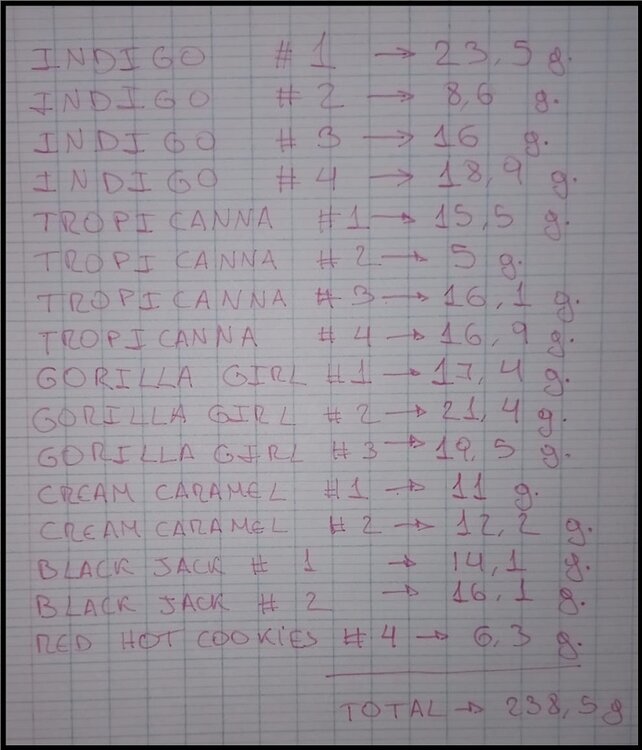 INDIGO #1 → 23,5 g.
INDIGO #2 → 8,6 g.
INDIGO #3 → 16 g.
INDIGO #4 → 18,9 g.
TROPICANNA #1 → 15,5 g.
TROPICANNA #2 → 5 g.
TROPICANNA #3 → 16,1 g.
TROPICANNA #4 → 16,9 g.
GORILLA GIRL #1 → 17,4 g.
GORILLA GIRL #2 → 21,4 g.
GORILLA GIRL #3 → 19,5 g.
CREAM CARAMEL #1 → 11 g.
CREAM CARAMEL #2 → 12,2 g.
BLACK JACK # 1 → 14,1 g.
BLACK JACK # 2 → 16,1 g.
RED HOT COOKIES #4 → 6,3 g.
TOTAL → 238,5 g